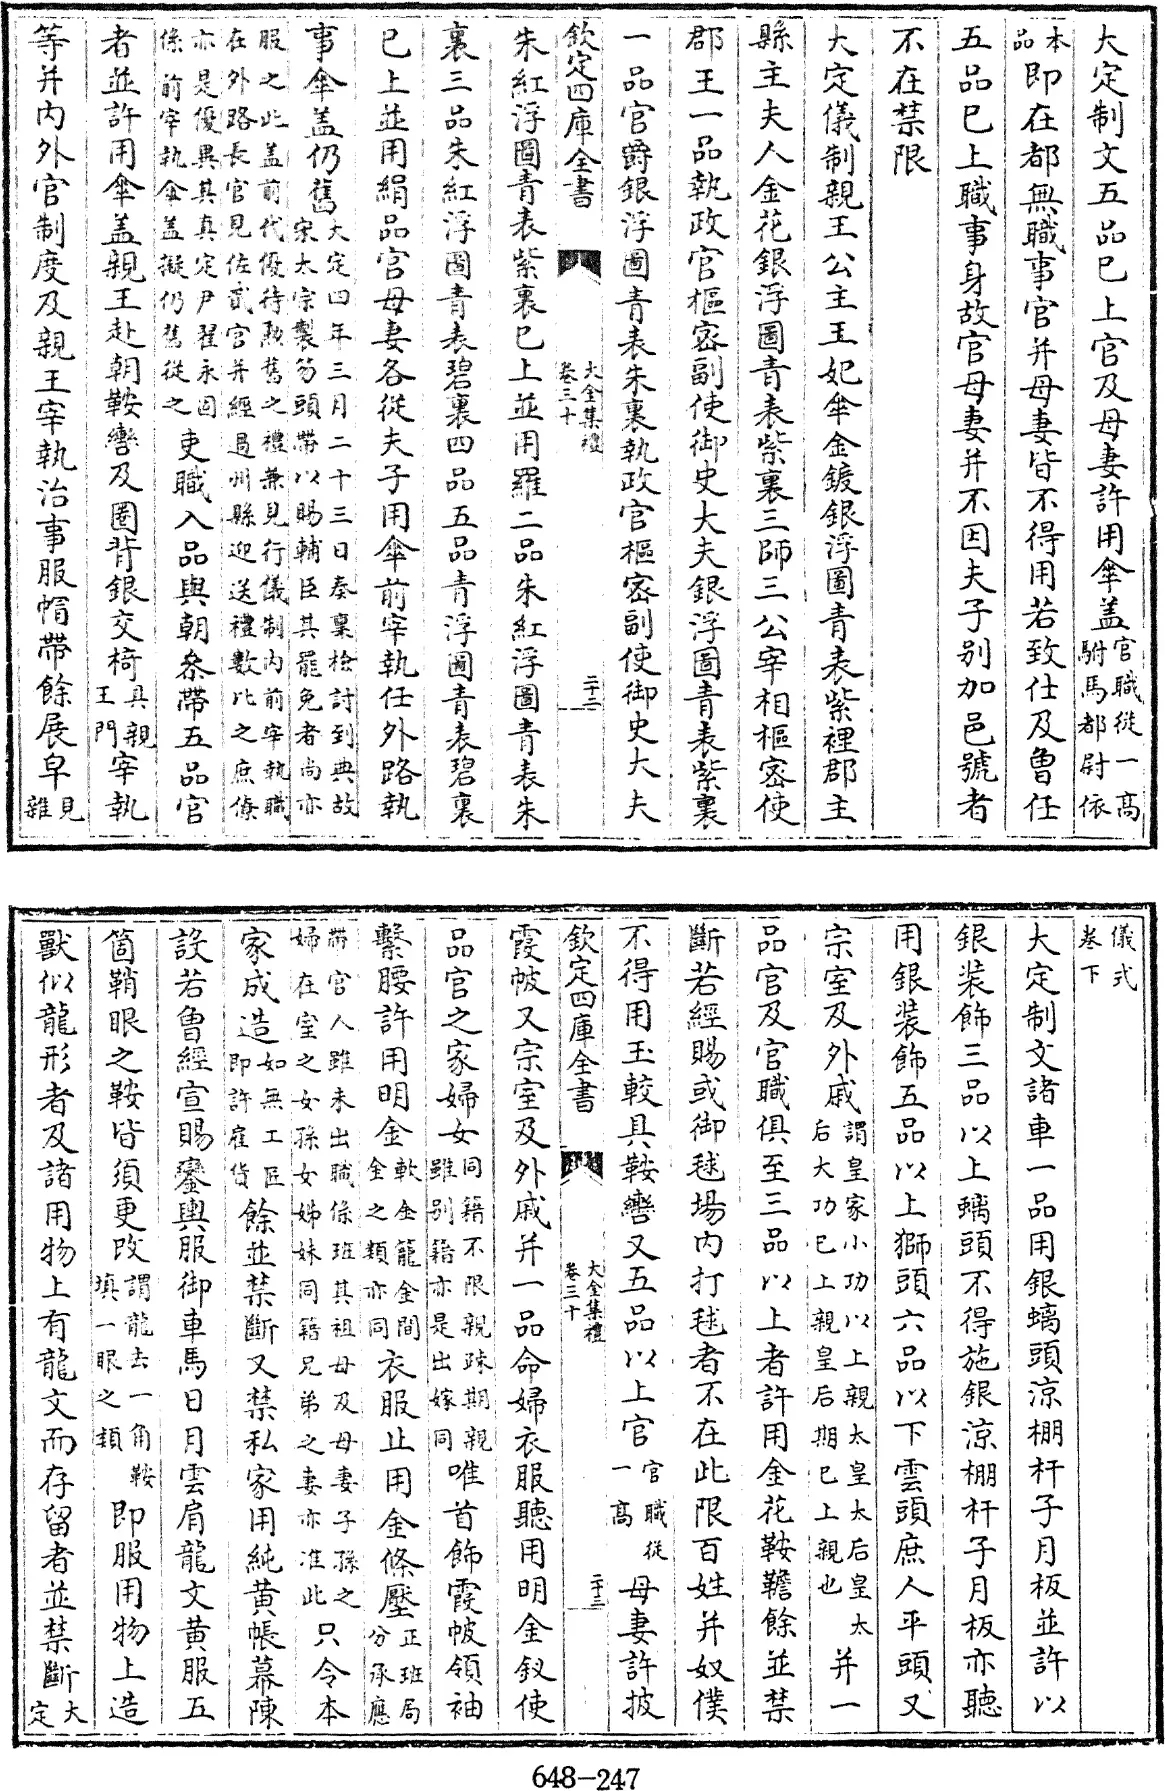 大定制文五品已上官及母妻許用傘盖官職從一髙駙馬都尉依
本品即在都無職事官并母妻皆不得用若致仕及曽任
五品已上職事身故官母妻并不因夫子别加邑號者
不在禁限
大定儀制親王公主王妃傘金鍍銀浮圖青表紫裡郡主
縣主夫人金花銀浮圖青表紫裏三師三公宰相樞宻使
郡王一品執政官樞宻副使御史大夫銀浮圖青表紫裏
一品官爵銀浮圖青表朱裏執政官樞宻副使御史大夫
欽定四庫全書 大金集禮卷三十 二十二
朱紅浮圖青表紫裏已上並用羅二品朱紅浮圖青表朱
裏三品朱紅浮圖青表碧裏四品五品青浮圖青表碧裏
已上並用絹品官母妻各從夫子用傘前宰執任外路執
事傘盖仍舊大定四年三月二十三日奏稟檢討到典故宋太宗製笏頭帶以賜輔臣其罷免者尚亦
服之此盖前代優待勲舊之禮兼見行儀制内前宰執職在外路長官見佐貳官并經過州縣迎送禮數比之庶僚
亦是優異其真定尹翟永固係前宰執傘盖擬仍舊從之吏職入品與朝叅帶五品官
者並許用傘盖親王赴朝鞍轡及圏背銀交椅具親王門宰執
等并内外官制度及親王宰執治事服㡌帶餘展皁見雜
儀式卷下
大定制文諸車一品用銀螭頭凉棚杆子月板並許以
銀装飾三品以上螭頭不得施銀凉棚杆子月板亦聽
用銀装飾五品以上獅頭六品以下雲頭庶人平頭又
宗室及外戚謂皇家小功以上親太皇太后皇太后大功已上親皇后期已上親也并一
品官及官職俱至三品以上者許用金花鞍韂餘並禁
斷若經賜或御毬場内打毬者不在此限百姓并奴僕
不得用玉較具鞍轡又五品以上官官職從一髙母妻許披
欽定四庫全書 大金集禮卷三十 二十三
霞帔又宗室及外戚并一品命婦衣服聽用明金釵使
品官之家婦女同籍不限親踈期親雖别籍亦是出嫁同唯首飾霞帔領袖
繫腰許用明金軟金籠金間金之類亦同衣服止用金絛壓正班局分承應
帶官人雖未出職係班其祖母及母妻子孫之婦在室之女孫女姊妹同籍兄弟之妻亦准此只令本
家成造如無工匠即許雇貨餘並禁斷又禁私家用純黄帳幕陳
設若曽經宣賜鑾輿服御車馬日月雲肩龍文黄服五
箇鞘眼之鞍皆須更改謂龍去一角鞍填一眼之類即服用物上造
獸似龍形者及諸用物上有龍文而存留者並禁斷大定
648-247